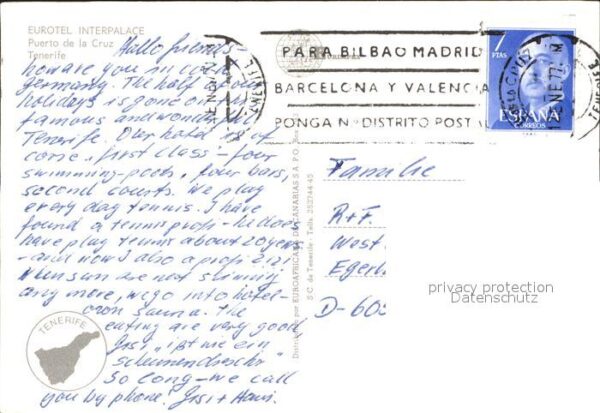 EUROTEL INTERPALACE
Puerto de la Cruz
Tenerife
Hallo friends-
how are you in cold
germany. The half of our
holidays is gone on the
famous and wonderful
Tenerife. Our hotel is of
corse "first class" - four
swimming-pools, four bars,
second courts. We play
every day tennis. I have
found a tennisprofi - he does
have play tennis about 20 years
- and now I also a profi
When sun are not shining
any more, we go into hotel-
own sauna. The
eating are very good
ißt wie ein
Scheunendrescher
So long - we call
you by phone!
TENERIFE
PARA BILBAO MADRID
BARCELONA Y VALENCIA
PONGA Nº DISTRITO POSTAL
TENERIFE
12 ENE 77
7
PTAS
ESPAÑA
CORREOS
por EUROAFRICANA DE CANARIAS S.A.
S.C. de Tenerife
Familie
R+F.
West
Egerl
D-60
privacy protection
Datenschutz